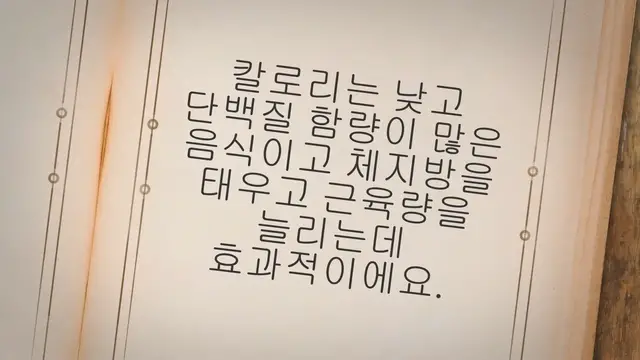 칼로리는 낮고
단백질 함량이 많은
음식이고 체지방을
태우고 근육량을
늘리는데
효과적이에요.